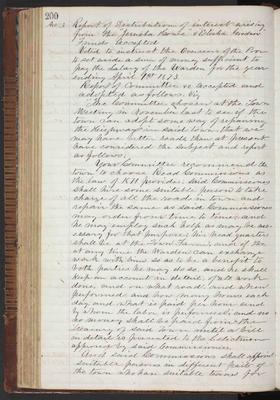 200
No. 3 Report of Distribution of interest arising
from the Jerusha Brown & Elisha Linden
Funds accepted.
Voted to instruct the Overseers of the Poor
to set aside a sum of money sufficient to
pay the salary of the Warden for the year
ending April 1st 1873.
Report of Committee is accepted and
adopted as follows. Viz
The Committee chosen at the Town
Meeting in November last to see if the
town can adopt some way of repairing
the Highways in said town, that we
may have better roads than at present
have considered the subject and report
as follows;
Your Committee recommend the
town to choose Road Commissioners as
the law of 1871 provides, said Commissioners
shall hire some suitable person to take
charge of all the roads in town and
repair the same as said Commissioners
may order from time to time; and
he may employ such help as may be nec-
essary for that purpose, his head quarters
shall be at the Town Farm, and if they
at any time the Warden can exchange
work with him so as to be a benefit to
both parties he may do so, and he shall
keep an account in detail, of all work
done, and on what road, and when
performed and how many hours each
day and what is paid per hour and
by whom the labor is performed, and no
money shall be paid from the
Treasury of said Town until a bill
in detail is presented to the Selectmen
approved by said Commissioners
And said Commissioners shall appoint
suitable persons in different parts of
the town who have suitable teams for